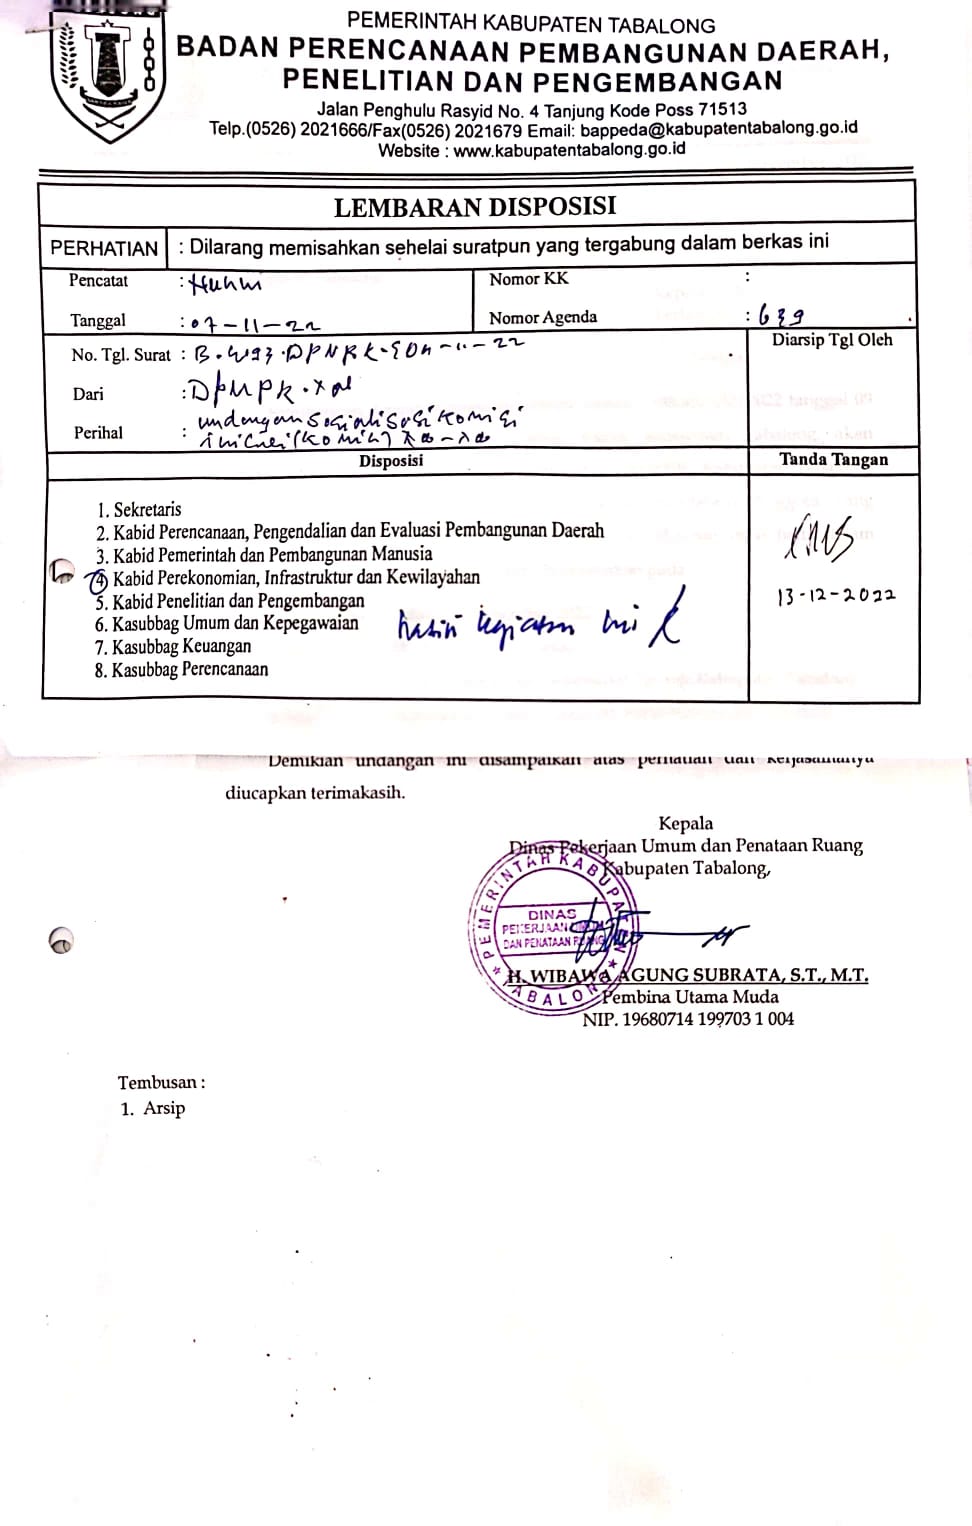 PEMERINTAH KABUPATEN TABALONG
BADAN PERENCANAAN PEMBANGUNAN DAERAH,
PENELITIAN DAN PENGEMBANGAN
Jalan Penghulu Rasyid No. 4 Tanjung Kode Poss 71513
Telp.(0526) 2021666/Fax(0526) 2021679 Email: bappeda@kabupatentabalong.go.id
Website : www.kabupatentabalong.go.id
LEMBARAN DISPOSISI
PERHATIAN : Dilarang memisahkan sehelai suratpun yang tergabung dalam berkas ini
Pencatat :
Nomor KK :
Tanggal : 07-11-22
Nomor Agenda : 639
No. Tgl. Surat :
Diarsip Tgl Oleh
Dari :
Perihal : undangan Sosialisasi Komisi
Disposisi
Tanda Tangan
1. Sekretaris
2. Kabid Perencanaan, Pengendalian dan Evaluasi Pembangunan Daerah
3. Kabid Pemerintah dan Pembangunan Manusia
4 Kabid Perekonomian, Infrastruktur dan Kewilayahan
5. Kabid Penelitian dan Pengembangan
6. Kasubbag Umum dan Kepegawaian
7. Kasubbag Keuangan
8. Kasubbag Perencanaan
kegiatan ini
13-12-2022
Demikian undangan ini disampaikan atas perhatian dan kerjasamanya
diucapkan terimakasih.
Kepala
Dinas Pekerjaan Umum dan Penataan Ruang
Kabupaten Tabalong,
PEMERINTAH KABUPATEN
DINAS
PEKERJAAN UMUM
DAN PENATAAN RUANG
TABALONG
H. WIBAWA AGUNG SUBRATA, S.T., M.T.
Pembina Utama Muda
NIP. 19680714 199703 1 004
Tembusan :
1. Arsip